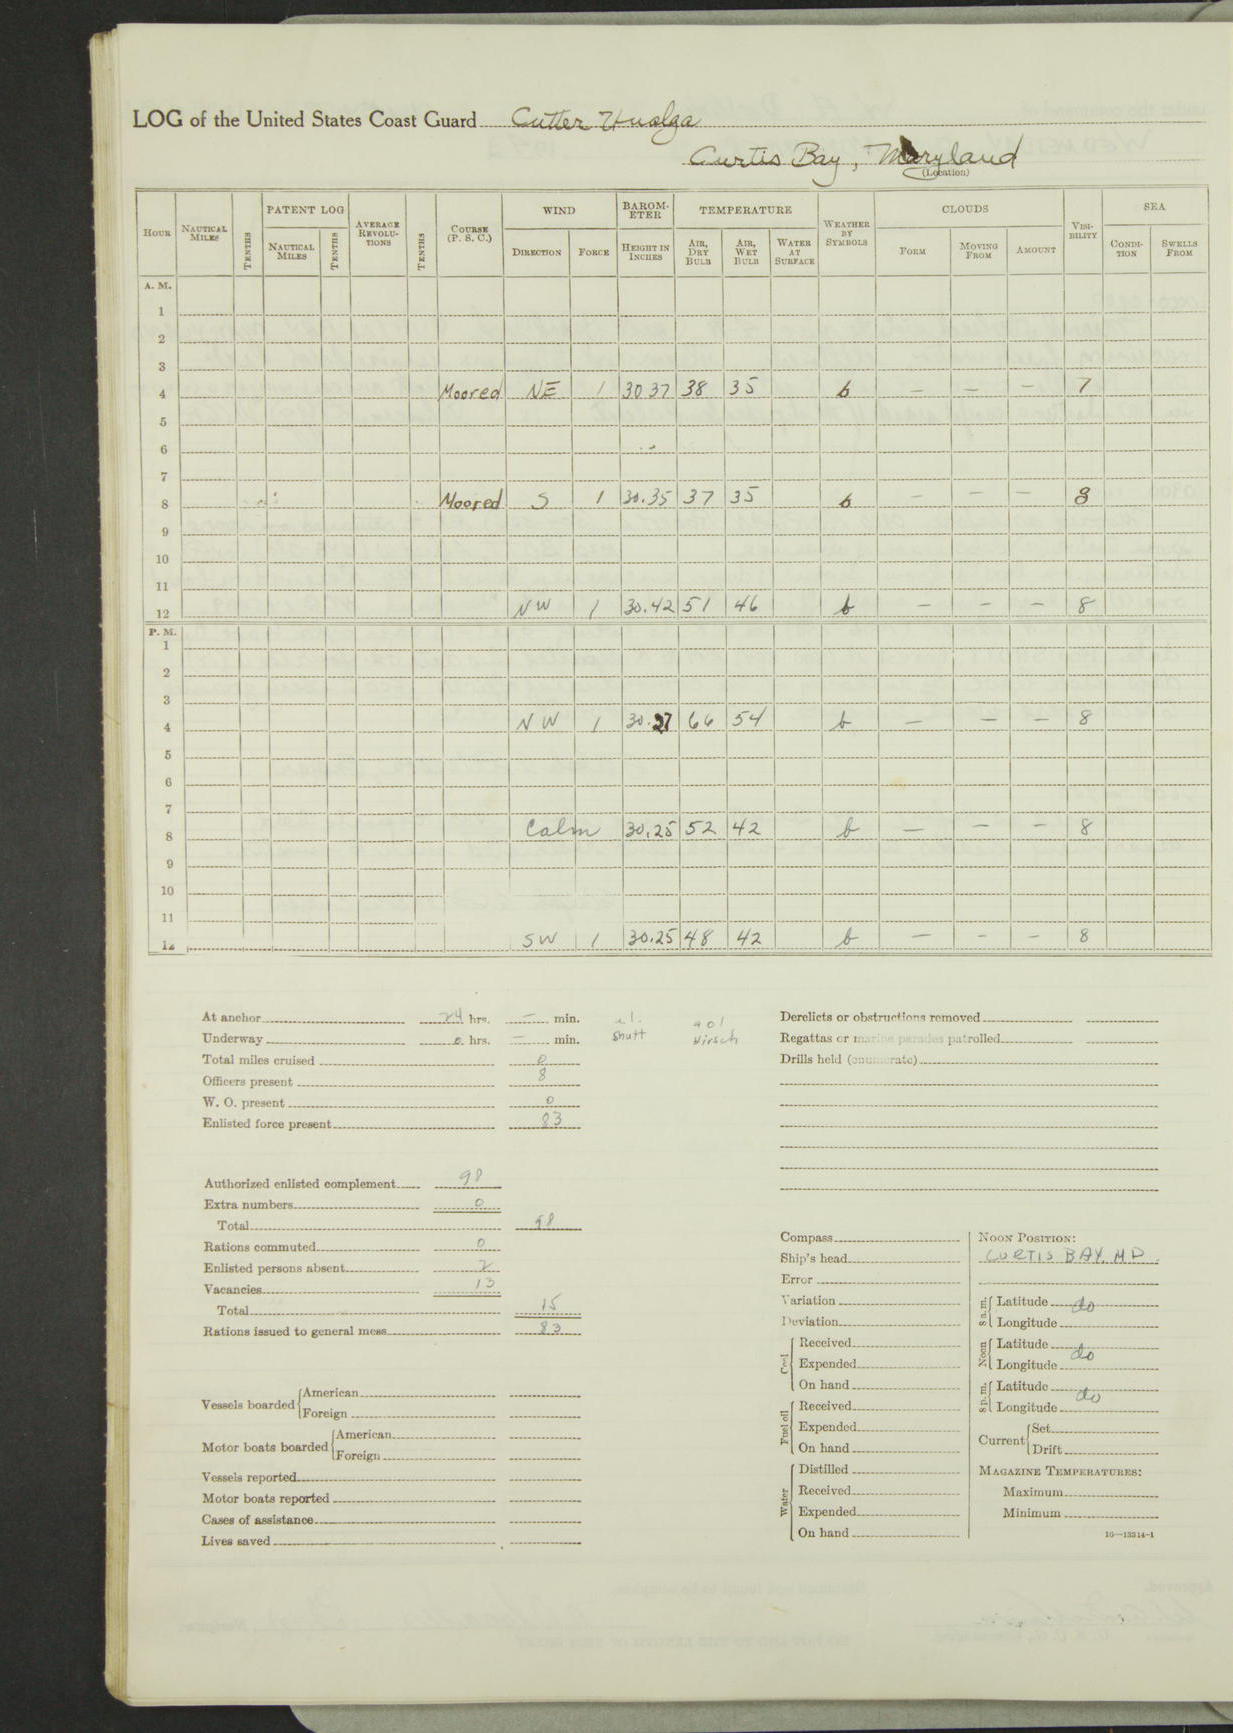 LOG of the United States Coast Guard Cutter Unalga
Curtis Bay, Maryland
(Location)
HOUR NAUTICAL MILES TENTHS PATENT LOG NAUTICAL MILES TENTHS AVERAGE REVOLUTIONS TENTHS COURSE (P. S. C.) WIND DIRECTION FORCE BAROMETER HEIGHT IN INCHES TEMPERATURE AIR, DRY BULB AIR, WET BULB WATER AT SURFACE WEATHER BY SYMBOLS CLOUDS FORM MOVING FROM AMOUNT VISIBILITY SEA CONDITION SWELLS FROM
A. M.
1
2
3
4 Moored NE 1 30 37 38 35 b — — — 7
5
6
7
8 Moored S 1 30.35 37 35 b — — — 8
9
10
11
12 NW 1 30.42 51 46 b — — — 8
P. M.
1
2
3
4 NW 1 30.27 66 54 b — — — 8
5
6
7
8 Calm 30.25 52 42 b — — — 8
9
10
11
12 SW 1 30.25 48 42 b — — — 8
At anchor 24 hrs. — min.
Underway 0 hrs. — min.
Total miles cruised 0
Officers present 8
W. O. present 0
Enlisted force present 83
Shutt
aol
Hirsch
Authorized enlisted complement 98
Extra numbers 0
Total 98
Rations commuted 0
Enlisted persons absent 2
Vacancies 13
Total 15
Rations issued to general mess 83
Vessels boarded American
Foreign
Motor boats boarded American
Foreign
Vessels reported
Motor boats reported
Cases of assistance
Lives saved
Derelicts or obstructions removed
Regattas or marine parades patrolled
Drills held (enumerate)
Compass
Ship's head
Error
Variation
Deviation
Coal Received
Expended
On hand
Fuel oil Received
Expended
On hand
Water Distilled
Received
Expended
On hand
NOON POSITION:
CURTIS BAY, MD.
8 a.m. Latitude do
Longitude
Noon Latitude do
Longitude
8 p.m. Latitude do
Longitude
Current Set
Drift
MAGAZINE TEMPERATURES:
Maximum
Minimum
16—13314-1